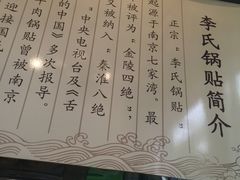 李氏锅贴简介
正宗“李氏锅贴”
起源于南京七家湾。最
被评为“金陵四绝”，
又被纳入“秦淮八绝
”中央电视台及《舌
的中国》多次报导。
牛肉锅贴曾被南京
迎接国